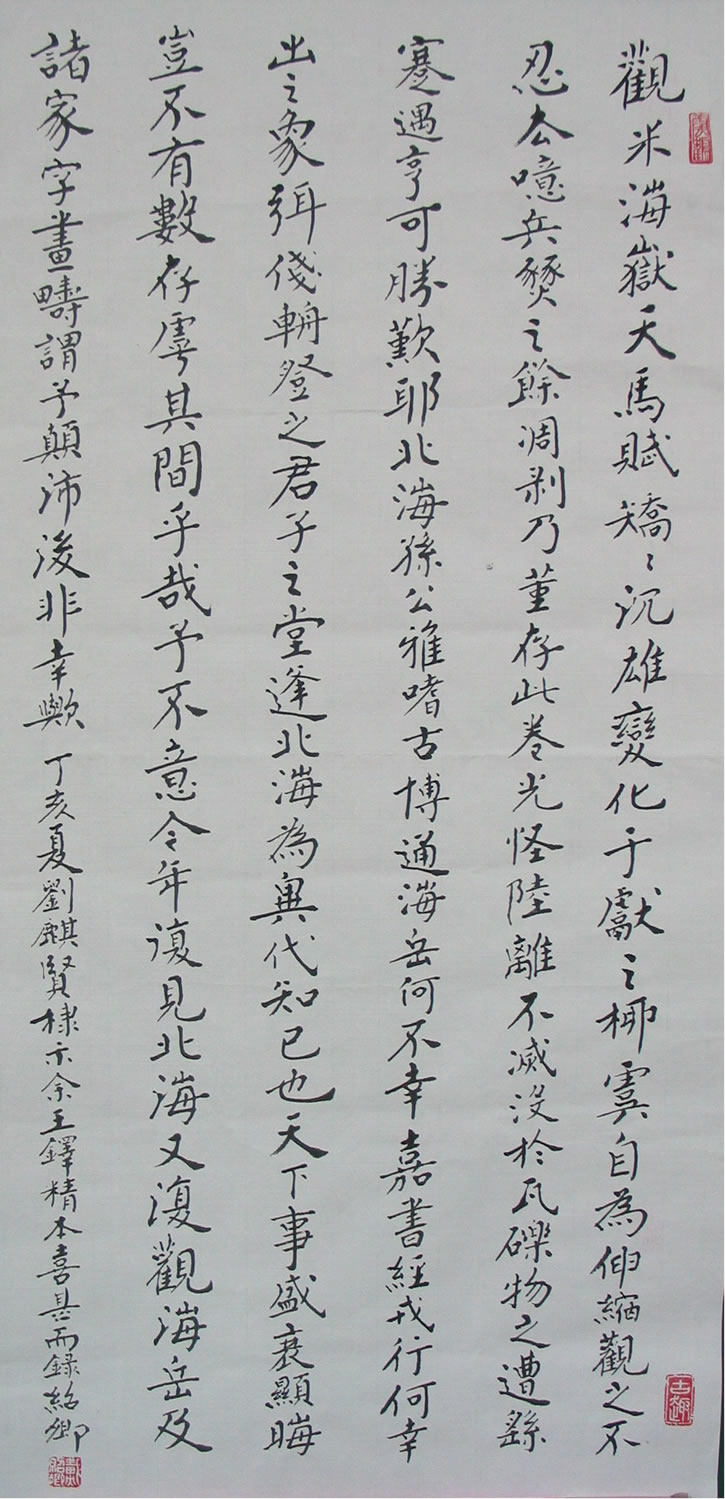 觀米海嶽天馬賦矯矯沉雄變化于獻之柳虞自為伸縮觀之不
忍去噫兵燹之餘凋剥乃堇存此卷光怪陸離不滅没於瓦礫物之遭繇
蹇遇亨可勝歎耶北海孫公雅嗜古博通海岳何不幸嘉書經戎行何幸
出之象弭俴輈登之君子之堂逢北海為異代知已也天下事盛衰顯晦
豈不有數存雩其間乎哉予不意今年復見北海又復觀海岳及
諸家字畫疇謂予顛沛後非幸歟
丁亥夏劉麒賢棣示余王鐸精本喜甚而録紹卿
古趣